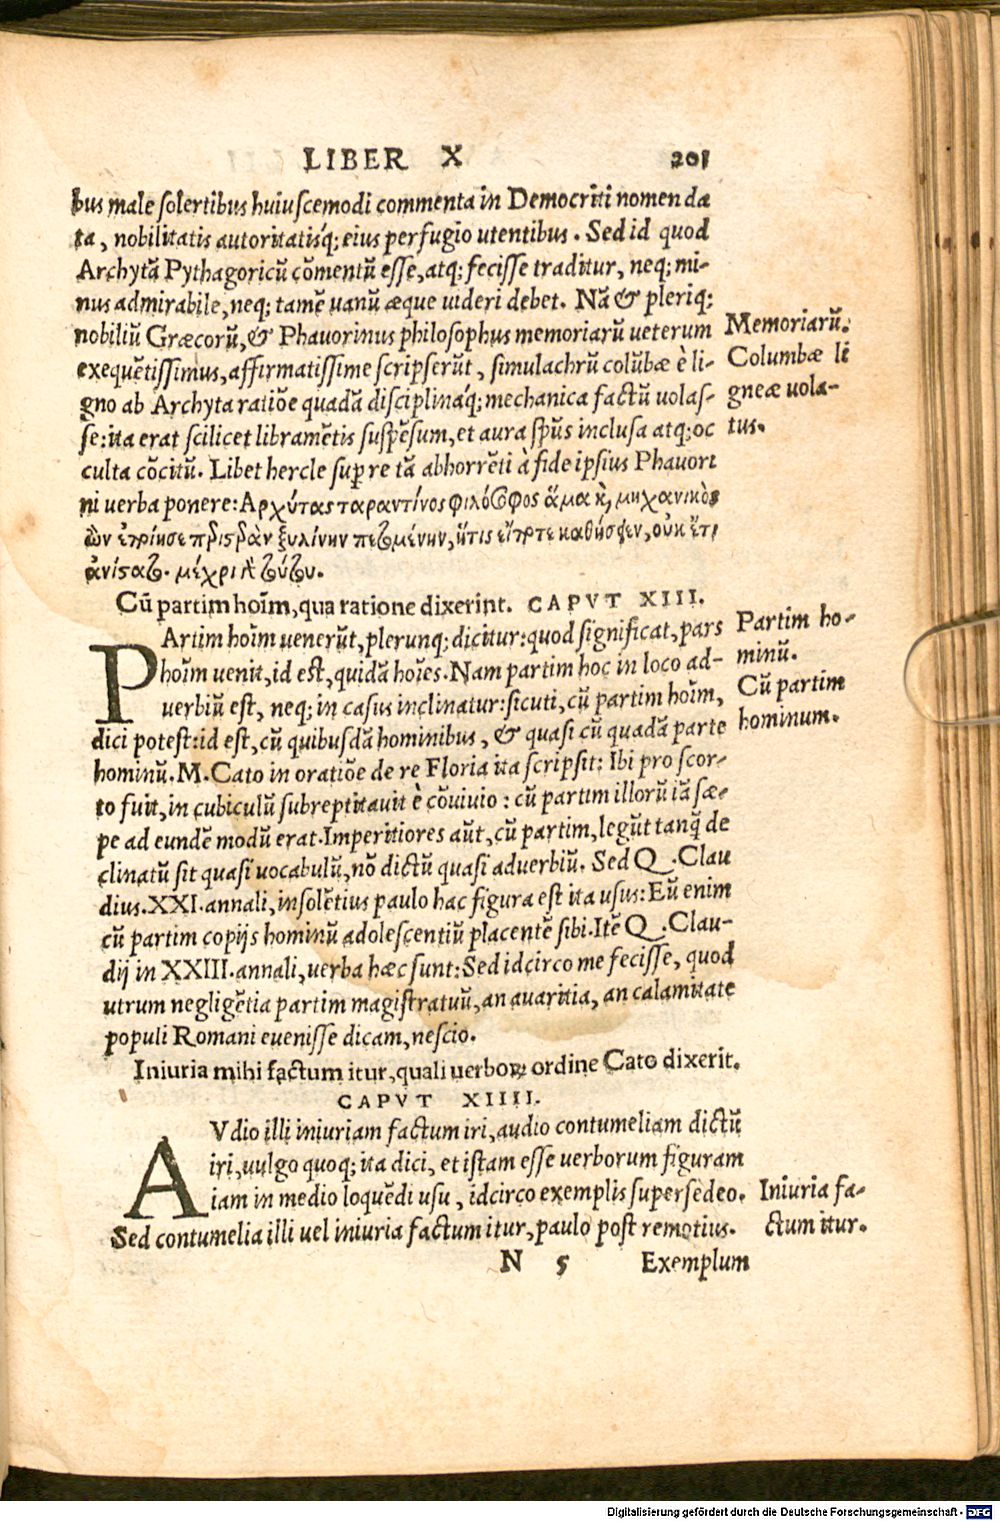 LIBER X 201
bus male solertibus huiuscemodi commenta in Democriti nomen da
ta, nobilitatis autoritatisq́; eius perfugio utentibus. Sed id quod
Archytā Pythagoricū cōmentū esse, atq; fecisse traditur, neq; mi-
nus admirabile, neq; tamē uanū æque uideri debet. Nā & pleriq;
nobiliū Græcorū, & Phauorinus philosophus memoriarū ueterum
exequētissimus, affirmatissime scripserūt, simulachrū colūbæ è li-
gno ab Archyta ratiōe quadā disciplinaq́; mechanica factū uolas-
se: ita erat scilicet libramētis suspēsum, et aura spūs inclusa atq; oc
culta cōcitū. Libet hercle super re tā abhorrēti à fide ipsius Phauori
ni uerba ponere: Αρχύτας ταραντίνος φιλόσοφος ἅμα κ̀, μηχανικὸς
ὢν ἐποίησε
ἀνίσατο. μέχρι
Cū partim hoīm, qua ratione dixerint. CAPVT XIII.
PArtim hoīm uenerūt, plerunq; dicitur: quod significat, pars
hoīm uenit, id est, quidā hoīes. Nam partim hoc in loco ad-
uerbiū est, neq; in casus inclinatur: sicuti, cū partim hoīm,
dici potest: id est, cū quibusdā hominibus, & quasi cū quadā parte
hominū. M. Cato in oratiōe de re Floria ita scripsit: Ibi pro scor-
to fuit, in cubiculū subreptitauit è cōuiuio: cū partim illorū iā sæ-
pe ad eundē modū erat. Imperitiores aūt, cū partim, legūt tanq̄ de
clinatū sit quasi uocabulū, nō dictū quasi aduerbiū. Sed Q. Clau
dius. XXI. annali, insolētius paulo hac figura est ita usus: Eū enim
cū partim copijs hominū adolescentiū placentē sibi. Itē Q. Clau-
dij in XXIII. annali, uerba hæc sunt: Sed idcirco me fecisse, quod
utrum negligētia partim magistratuū, an auaritia, an calamitate
populi Romani euenisse dicam, nescio.
Iniuria mihi factum itur, quali uerboꝝ ordine Cato dixerit.
CAPVT XIIII.
AVdio illi iniuriam factum iri, audio contumeliam dictū
iri, uulgo quoq; ita dici, et istam esse uerborum figuram
iam in medio loquēdi usu, idcirco exemplis supersedeo.
Sed contumelia illi uel iniuria factum itur, paulo post remotius.
N 5 Exemplum
Memoriarū.
Columbæ li
gneæ uola-
tus.
Partim ho-
minū.
Cū partim
hominum.
Iniuria fa-
ctum itur.
Digitalisierung gefördert durch die Deutsche Forschungsgemeinschaft - DFG